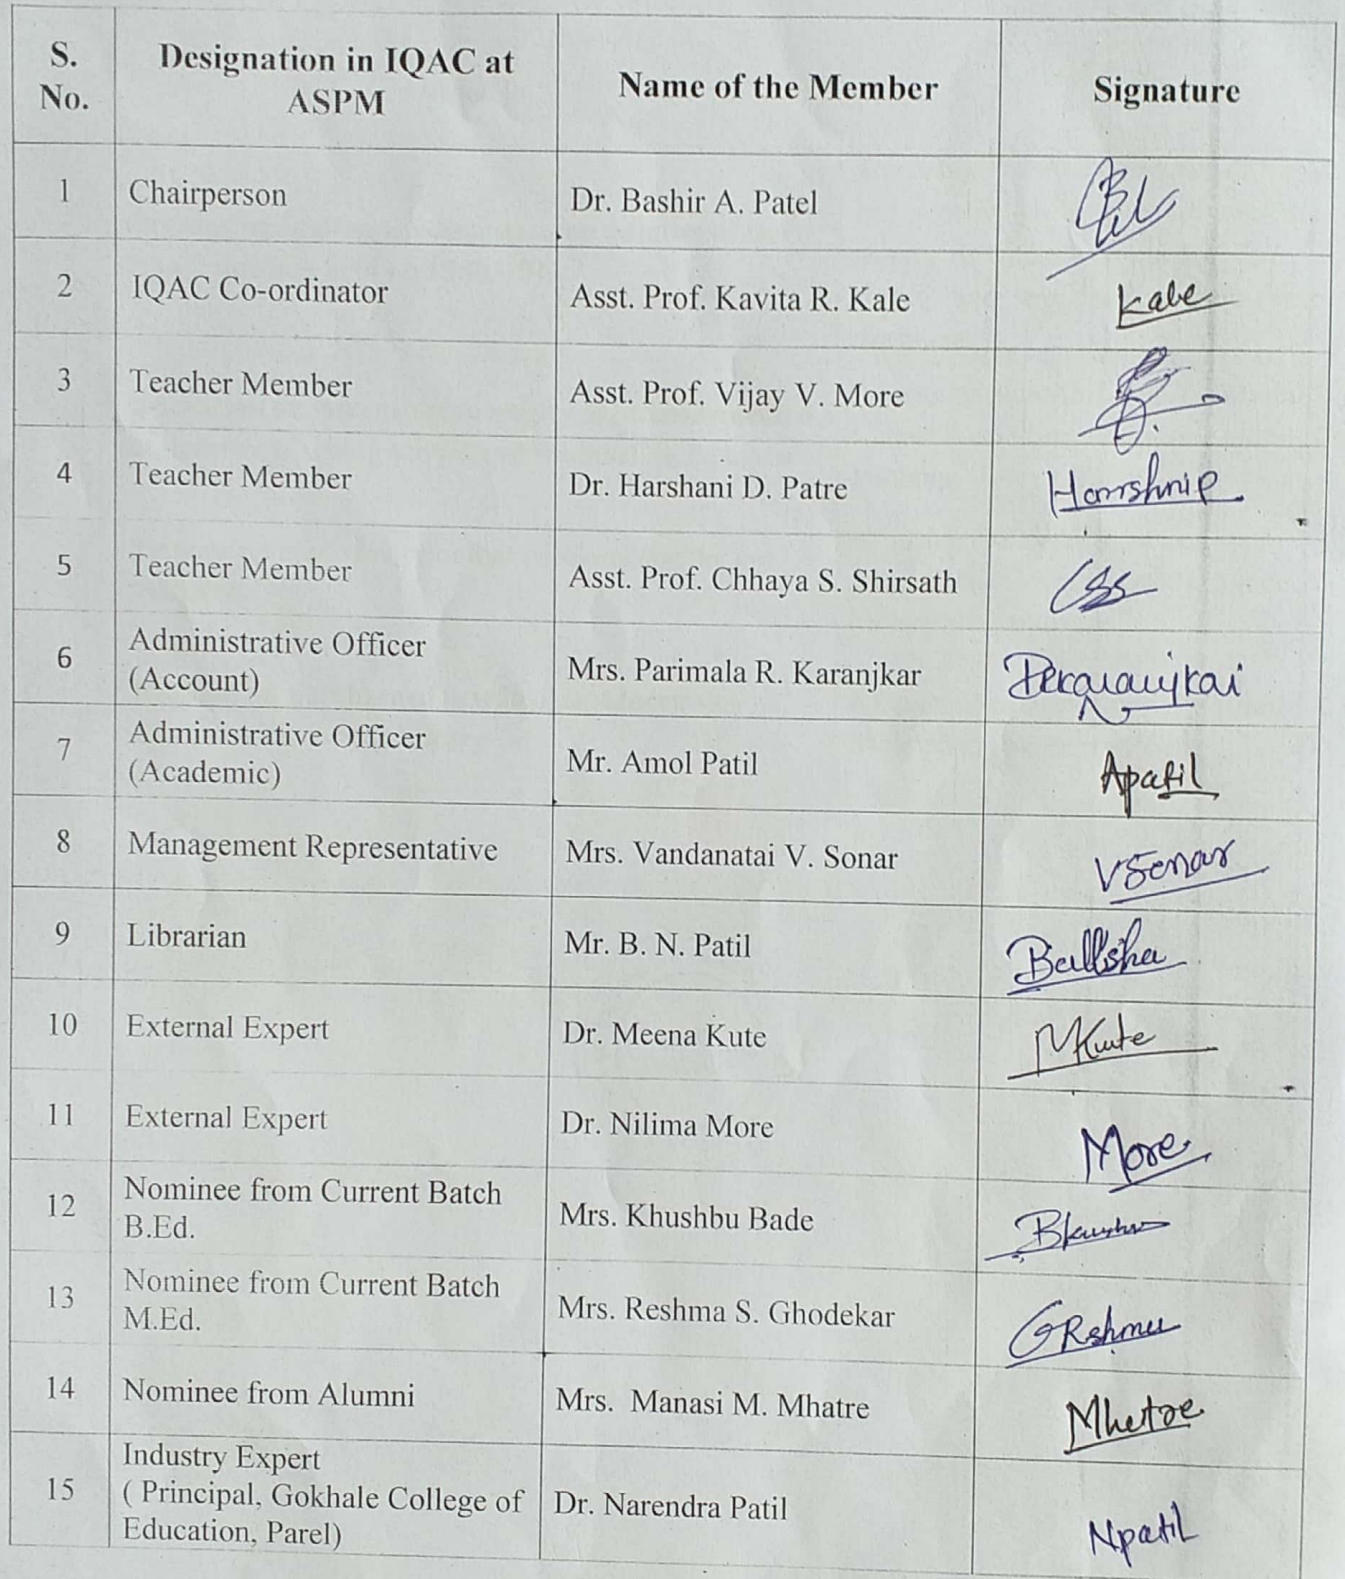 S. No. Designation in IQAC at ASPM Name of the Member Signature
1 Chairperson Dr. Bashir A. Patel
2 IQAC Co-ordinator Asst. Prof. Kavita R. Kale Kale
3 Teacher Member Asst. Prof. Vijay V. More
4 Teacher Member Dr. Harshani D. Patre
5 Teacher Member Asst. Prof. Chhaya S. Shirsath
6 Administrative Officer
(Account) Mrs. Parimala R. Karanjkar
7 Administrative Officer
(Academic) Mr. Amol Patil Apatil
8 Management Representative Mrs. Vandanatai V. Sonar VSonar
9 Librarian Mr. B. N. Patil
10 External Expert Dr. Meena Kute MKute
11 External Expert Dr. Nilima More More
12 Nominee from Current Batch
B.Ed. Mrs. Khushbu Bade
13 Nominee from Current Batch
M.Ed. Mrs. Reshma S. Ghodekar
14 Nominee from Alumni Mrs. Manasi M. Mhatre
15 Industry Expert
( Principal, Gokhale College of
Education, Parel) Dr. Narendra Patil Npatil